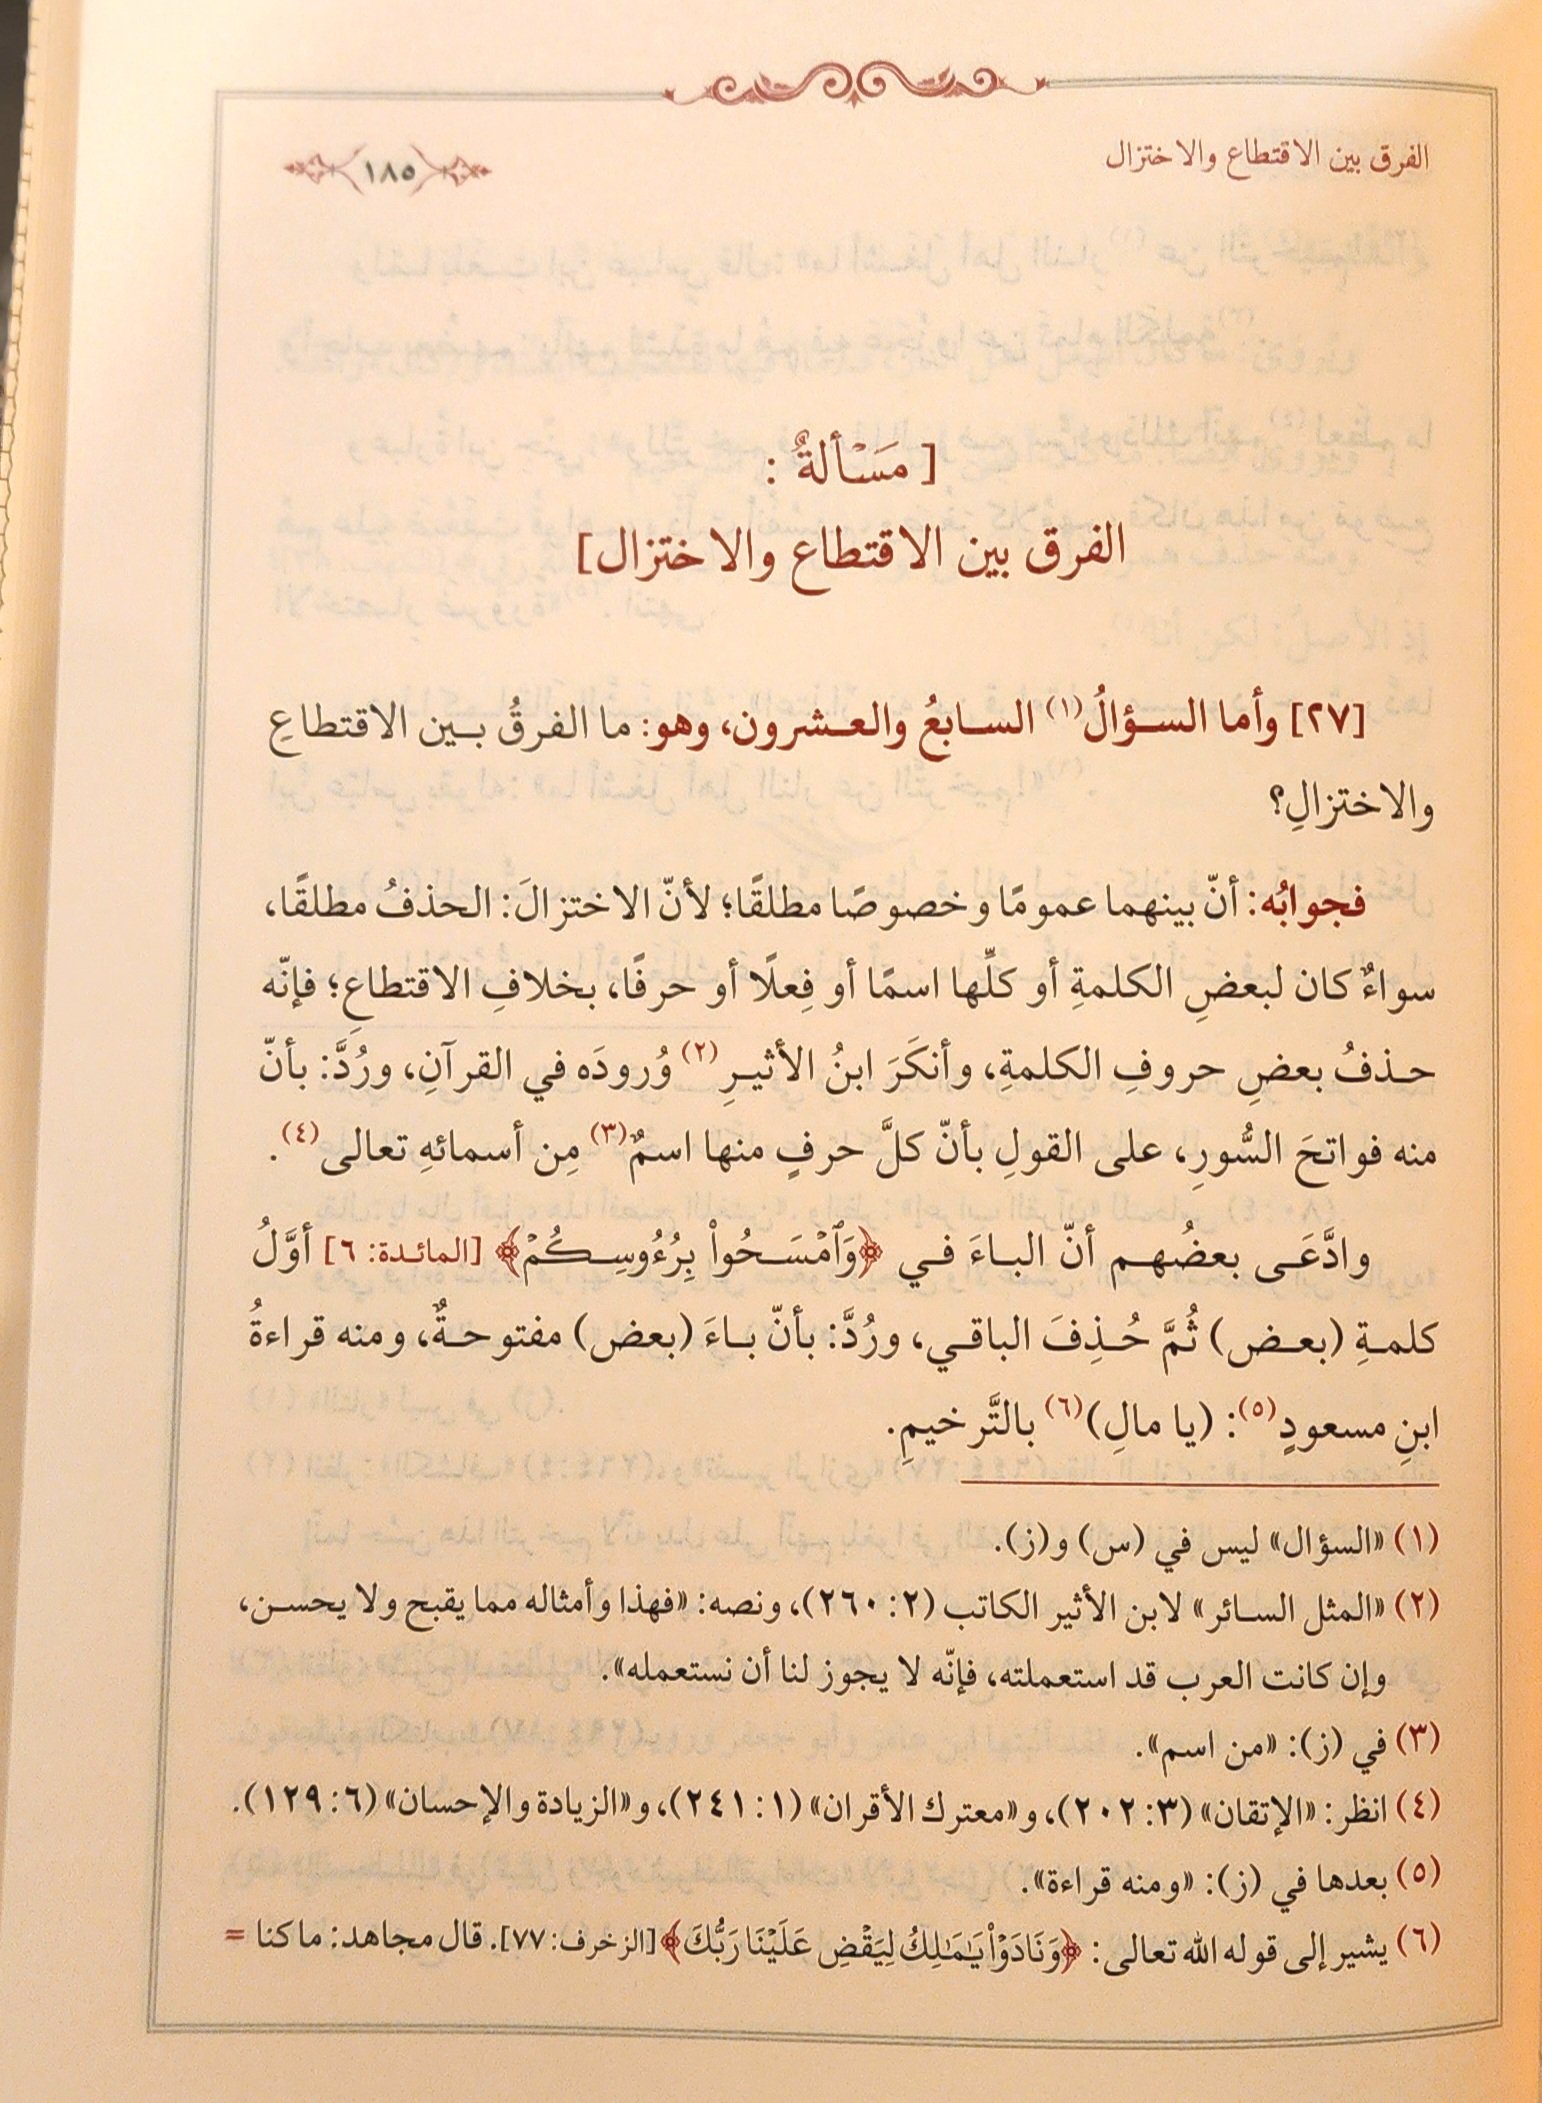 الفرق بين الاقتطاع والاختزال
١٨٥
[ مَسْألةٌ :
الفرق بين الاقتطاع والاختزال]
[٢٧] وأما السؤالُ(١) السابعُ والعشرون، وهو: ما الفرقُ بين الاقتطاعِ
والاختزالِ؟
فجوابُه: أنّ بينهما عمومًا وخصوصًا مطلقًا؛ لأنّ الاختزالَ: الحذفُ مطلقًا،
سواءٌ كان لبعضِ الكلمةِ أو كلِّها اسمًا أو فِعلًا أو حرفًا، بخلافِ الاقتطاعِ؛ فإنّه
حذفُ بعضِ حروفِ الكلمةِ، وأنكَرَ ابنُ الأثيرِ(٢) وُرودَه في القرآنِ، ورُدَّ: بأنّ
منه فواتحَ السُّورِ، على القولِ بأنّ كلَّ حرفٍ منها اسمٌ(٣) مِن أسمائهِ تعالى(٤).
وادَّعَى بعضُهم أنّ الباءَ في ﴿وَٱمْسَحُوا۟ بِرُءُوسِكُمْ﴾ [المائدة: ٦] أوَّلُ
كلمةِ (بعض) ثُمَّ حُذِفَ الباقي، ورُدَّ: بأنّ باءَ (بعض) مفتوحةٌ، ومنه قراءةُ
ابنِ مسعودٍ(٥): (يا مالِ)(٦) بالتَّرخيمِ.
(١) «السؤال» ليس في (س) و(ز).
(٢) «المثل السائر» لابن الأثير الكاتب (٢: ٢٦٠)، ونصه: «فهذا وأمثاله مما يقبح ولا يحسن،
وإن كانت العرب قد استعملته، فإنّه لا يجوز لنا أن نستعمله».
(٣) في (ز): «من اسم».
(٤) انظر: «الإتقان» (٣: ٢٠٢)، و«معترك الأقران» (١: ٢٤١)، و«الزيادة والإحسان» (٦: ١٢٩).
(٥) بعدها في (ز): «ومنه قراءة».
(٦) يشير إلى قوله الله تعالى: ﴿وَنَادَوْا۟ يَـٰمَـٰلِكُ لِيَقْضِ عَلَيْنَا رَبُّكَ﴾ [الزخرف: ٧٧]. قال مجاهد: ما كنا =